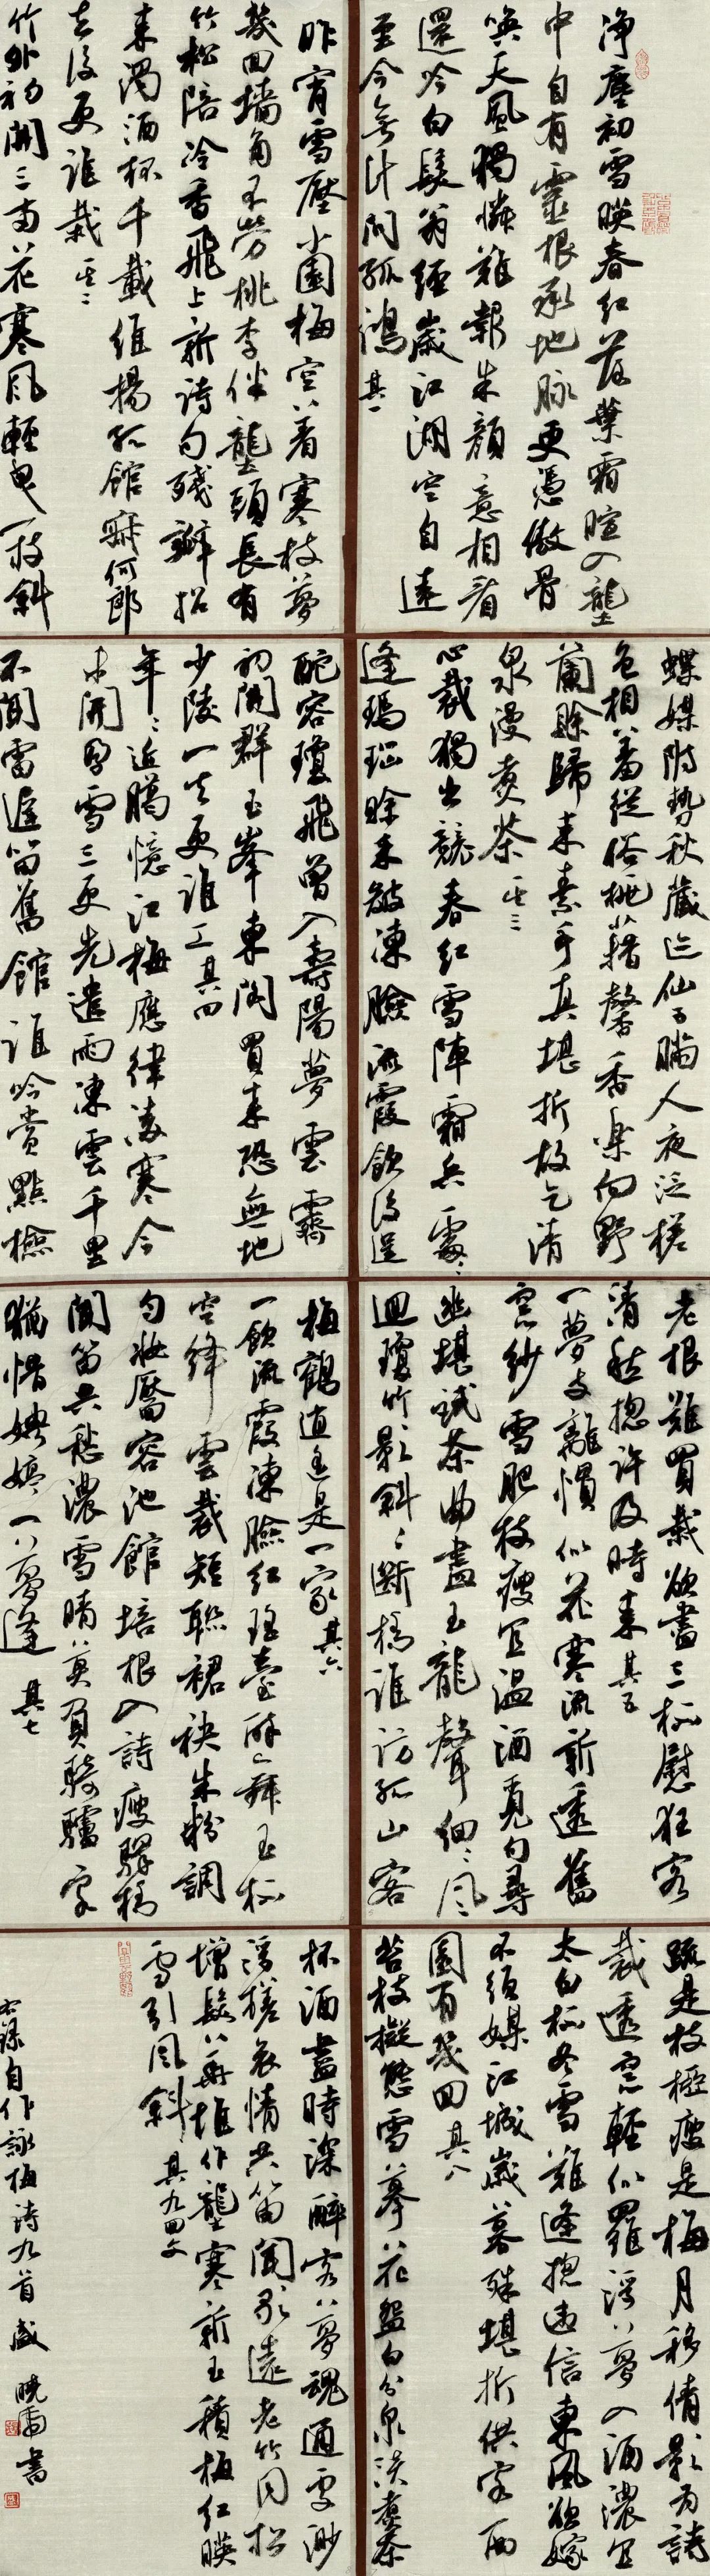 净塵初雪暎春紅落葉霜暄入壟
中自有靈根承地脉更憑傲骨
喚天風獨憐難報朱顏意相看
還吟白髮翁經歲江湖空自遠
至今無計問孤鴻 其一
昨宵雪壓小園梅空著寒枝夢
幾回墻角不勞桃李伴壟頭長有
竹松陪冷香飛上新詩句殘瓣招
來濁酒杯千載維揚孤館寂何郎
去後更誰栽 其二
竹外初開三兩花寒風輕曳一枝斜
蝶媒附勢秋藏迹仙子瞞人夜泛槎
色相羞從俗桃藉馨香樂向野
蘭賒歸來素手真堪折故乞清
泉漫煮茶 其三
心裁獨出競春紅雪陣霜兵處處
逢瑪瑙賒來皴凍臉流霞飲後逞
酡容瓊飛曾入壽陽夢雲霽
初開群玉峯東閣買來恐無地
少陵一去更誰工 其四
年年近臘憶江梅應律凌寒今
未開雪三更先遣雨凍雲千里
不聞雷笛舊館誰吟賞點檢
老根難買栽欲盡三杯慰狂客
清愁摠許及時來 其五
一夢支離慣似花寒流新透舊
窓紗雪肥枝瘦宜温酒覓句尋
幽堪試茶曲盡玉龍聲細細風
迴瓊竹影斜斜斷橋誰訪孤山客
梅鶴逋是一家 其六
一飲流霞凍臉紅瑶臺醉舞玉杯
空絳雲裁短聯裙袂朱粉調
勻妝靨容池館培根入詩瘦驛橋
聞笛共愁濃雪晴莫負騎驢客
猶惜娉婷一夢逢 其七
疏是枝椏瘦是梅月移倩影為詩
裁透窓輕似羅浮夢入酒濃宜
太白杯冬雪難逢摠違信東風欲嫁
不須媒江城歲暮殊堪折供兩
園有幾回 其八
苔枝擬態雪摹花盤白分泉淡煮茶
杯酒盡時深醉客夢魂通處渺
浮槎衰情共笛聞歌遠老竹同松
增鬢華堆作壟寒新玉積梅紅暎
雪引風斜 其九
右錄自作詠梅詩九首 盛曉雷書